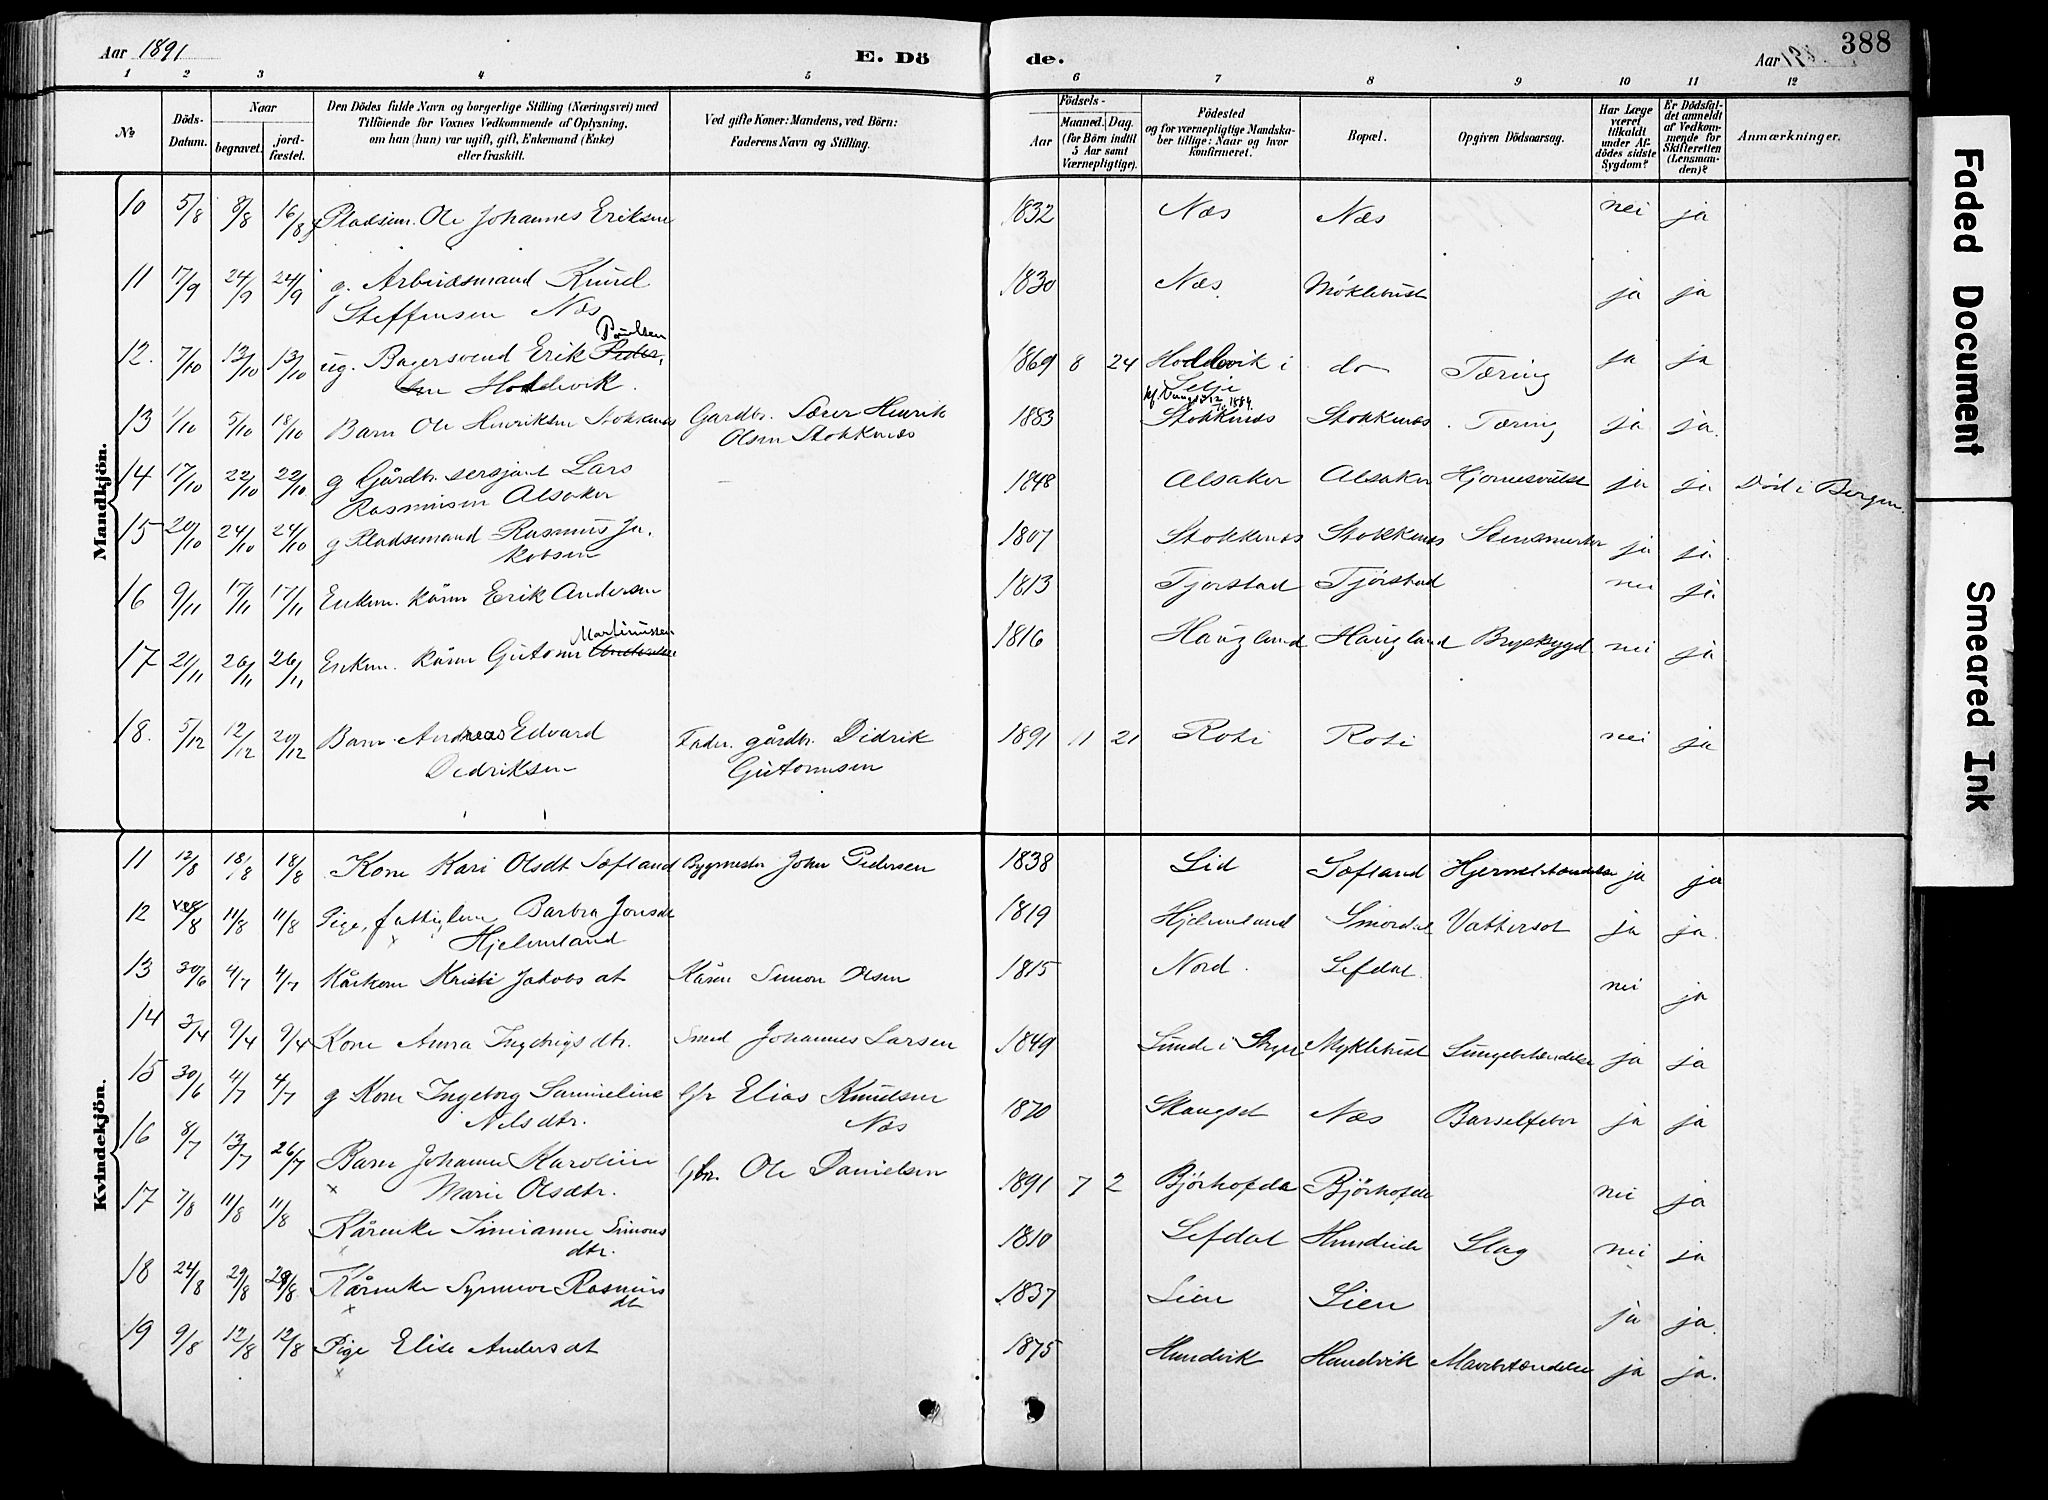 Aar 1891
E. Döde.
Aar 1891
388
1 2 3 4 5 6 7 8 9 10 11 12
No
Döds-Datum.
Naar
begravet.
jord-fæstet.
Den Dödes fulde Navn og borgerlige Stilling (Næringsvei) med
Tilföiende for Voxnes Vedkommende af Oplysning,
om han (hun) var ugift, gift, Enkemand (Enke)
eller fraskilt.
Ved gifte Koner: Mandens, ved Börn:
Faderens Navn og Stilling.
Födsels-
Aar
Maaned. Dag.
(for Börn indtil
5 Aar samt
Værnepligtige).
Födested
og for værnepligtige Mandska-
ber tillige: Naar og hvor
konfirmeret.
Bopæl.
Opgiven Dödsaarsag.
Har Læge
været
tilkaldt
under Af-
dödes sidste
Sygdom?
Er Dödsfal-
det anmeldt
af Vedkom-
mende for
Skifteretten
(Lensman-
den)?
Anmærkninger.
Mandkjön.
10 5/8 8/8 16/8 g Pladsem. Ole Johannes Eriksen 1832 Næs Næs nei ja
11 17/9 24/9 24/9 g. Arbeidsmand Knud 1830 Næs Möklebust ja ja
Steffensen Næs
Paulsen
12. 7/10 13/10 13/10 ug. Bagersvend Erik Peder- 1869 8 24 Hoddevik i do Tæring ja ja
sen Hoddevik. Selje
kf. 1884.
13 1/10 5/10 18/10 Barn Ole Henriksen Stokknæs Gardbr. Henrik 1883 Stokknæs Stokknæs. Tæring ja ja.
Olsen Stokknæs
14 17/10 22/10 22/10 g Gårdbr. sersjant Lars 1848 Alsaker Alsaker Hjernesvulst ja ja Död i Bergen.
Rasmussen Alsaker
15 20/10 24/10 24/10 g Pladsemand Rasmus Ja- 1807 Stokknæs Stokknæs Stensmerter ja ja.
kobsen
16 9/11 17/11 17/11 Enkem. kårm Erik Andersen 1813 Tjorstad Tjörstad nei ja
Martinussen
17 21/11 26/11 26/11 Enkem. kårm Guttorm Andersen 1816 Haugland Haugland Brystsygd nei ja
18. 5/12 12/12 20/12 Barn Andreas Edvard Fader. gårdbr. Didrik 1891 11 21 Roti Roti nei ja
Didriksen Guttormsen
Kvindekjön.
11 12/8 18/8 18/8 Kone Kari Olsdt Sæfland Bygmester John Pedersen 1838 Lid Sæfland Hjernebetændelse ja ja
12 /8 11/8 11/8 Pige, fattiglem Barbra Jonsdt 1819 Hjelmeland Smördal Vattersot ja ja.
Hjelmeland
13 30/6 4/7 4/7 Kårkone Kristi Jakobsdt Kårm Simon Olsen 1815 Nord. Lefdal. nei ja
14 3/4 9/4 9/4 Kone Anna Ingebrigsdtr. Smed Johannes Larsen 1849 Sunde i Stryn Myklebust Lungebetændelse ja ja
15 30/6 4/7 4/7 g Kone Ingeborg Sammeline Gbr Elias Knudsen 1870 Skaugset Næs Barselfeber ja ja
Nilsdtr. Næs
16 8/7 13/7 26/7 Barn Johanne Karoline Gbr. Ole Danielsen 1891 7 2 Björhofde Björhofde nei ja
x Marie Olsdtr.
17 7/8 11/8 11/8 Kårenke Simianne Simons 1810 Lefdal Hundeide Slag nei ja
dtr.
18 24/8 29/8 29/8 Kårenke Synneve Rasmus 1837 Lien Lien ja ja.
x dt
19 9/8 12/8 12/8 Pige Elise Andersdt 1875 Hundvik Hundvik Mavebetændelse ja ja.
x
Faded Document
Smeared Ink